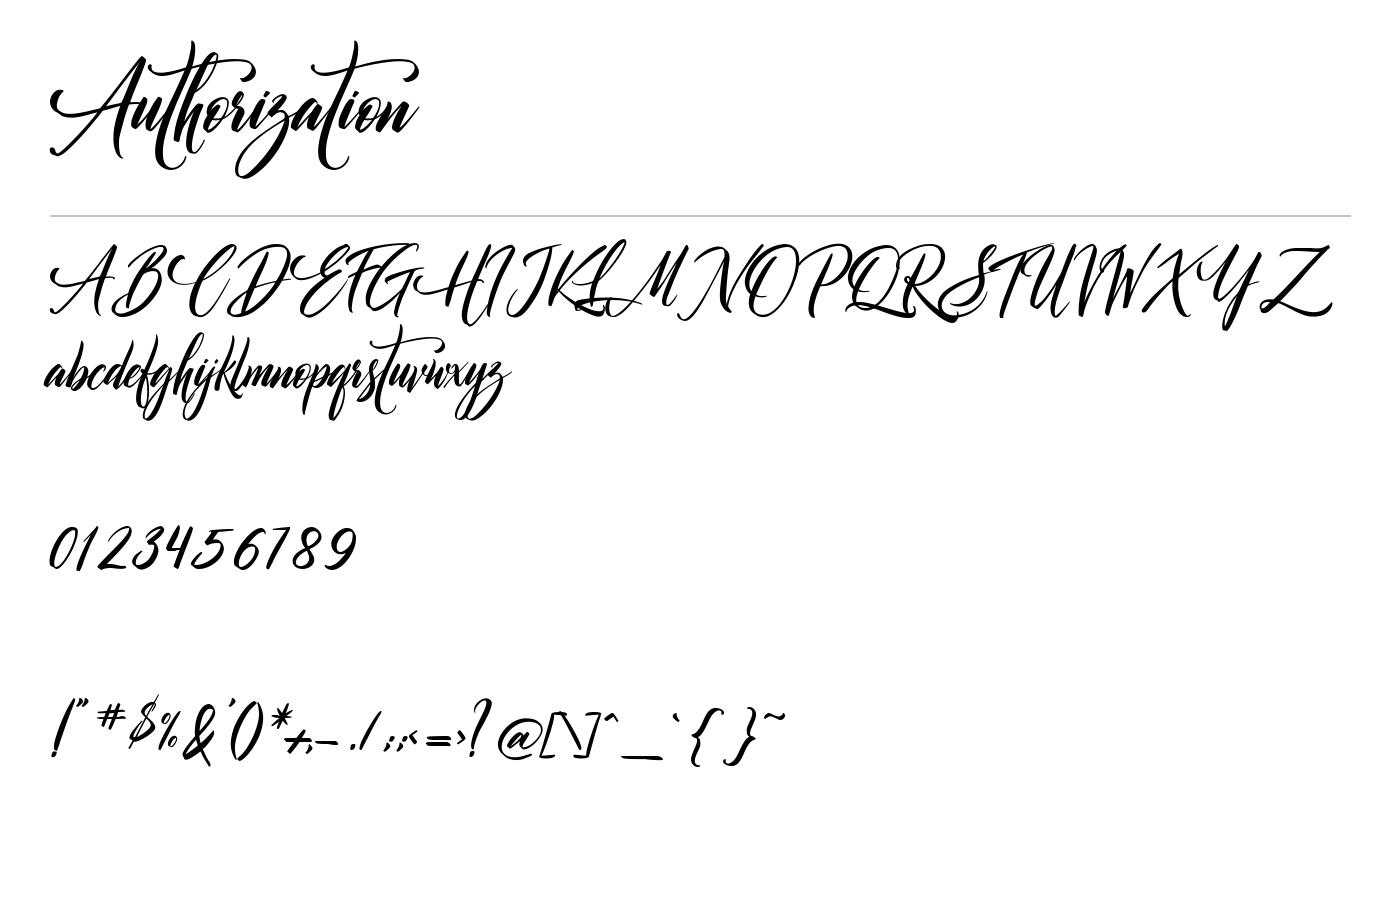 Authorization
ABCDEFGHIJKLMNOPQRSTUVWXYZ
abcdefghijklmnopqrstuvwxyz
0123456789
!"#$%&'()*+,-./:;<=>?@[\]^_`{}~